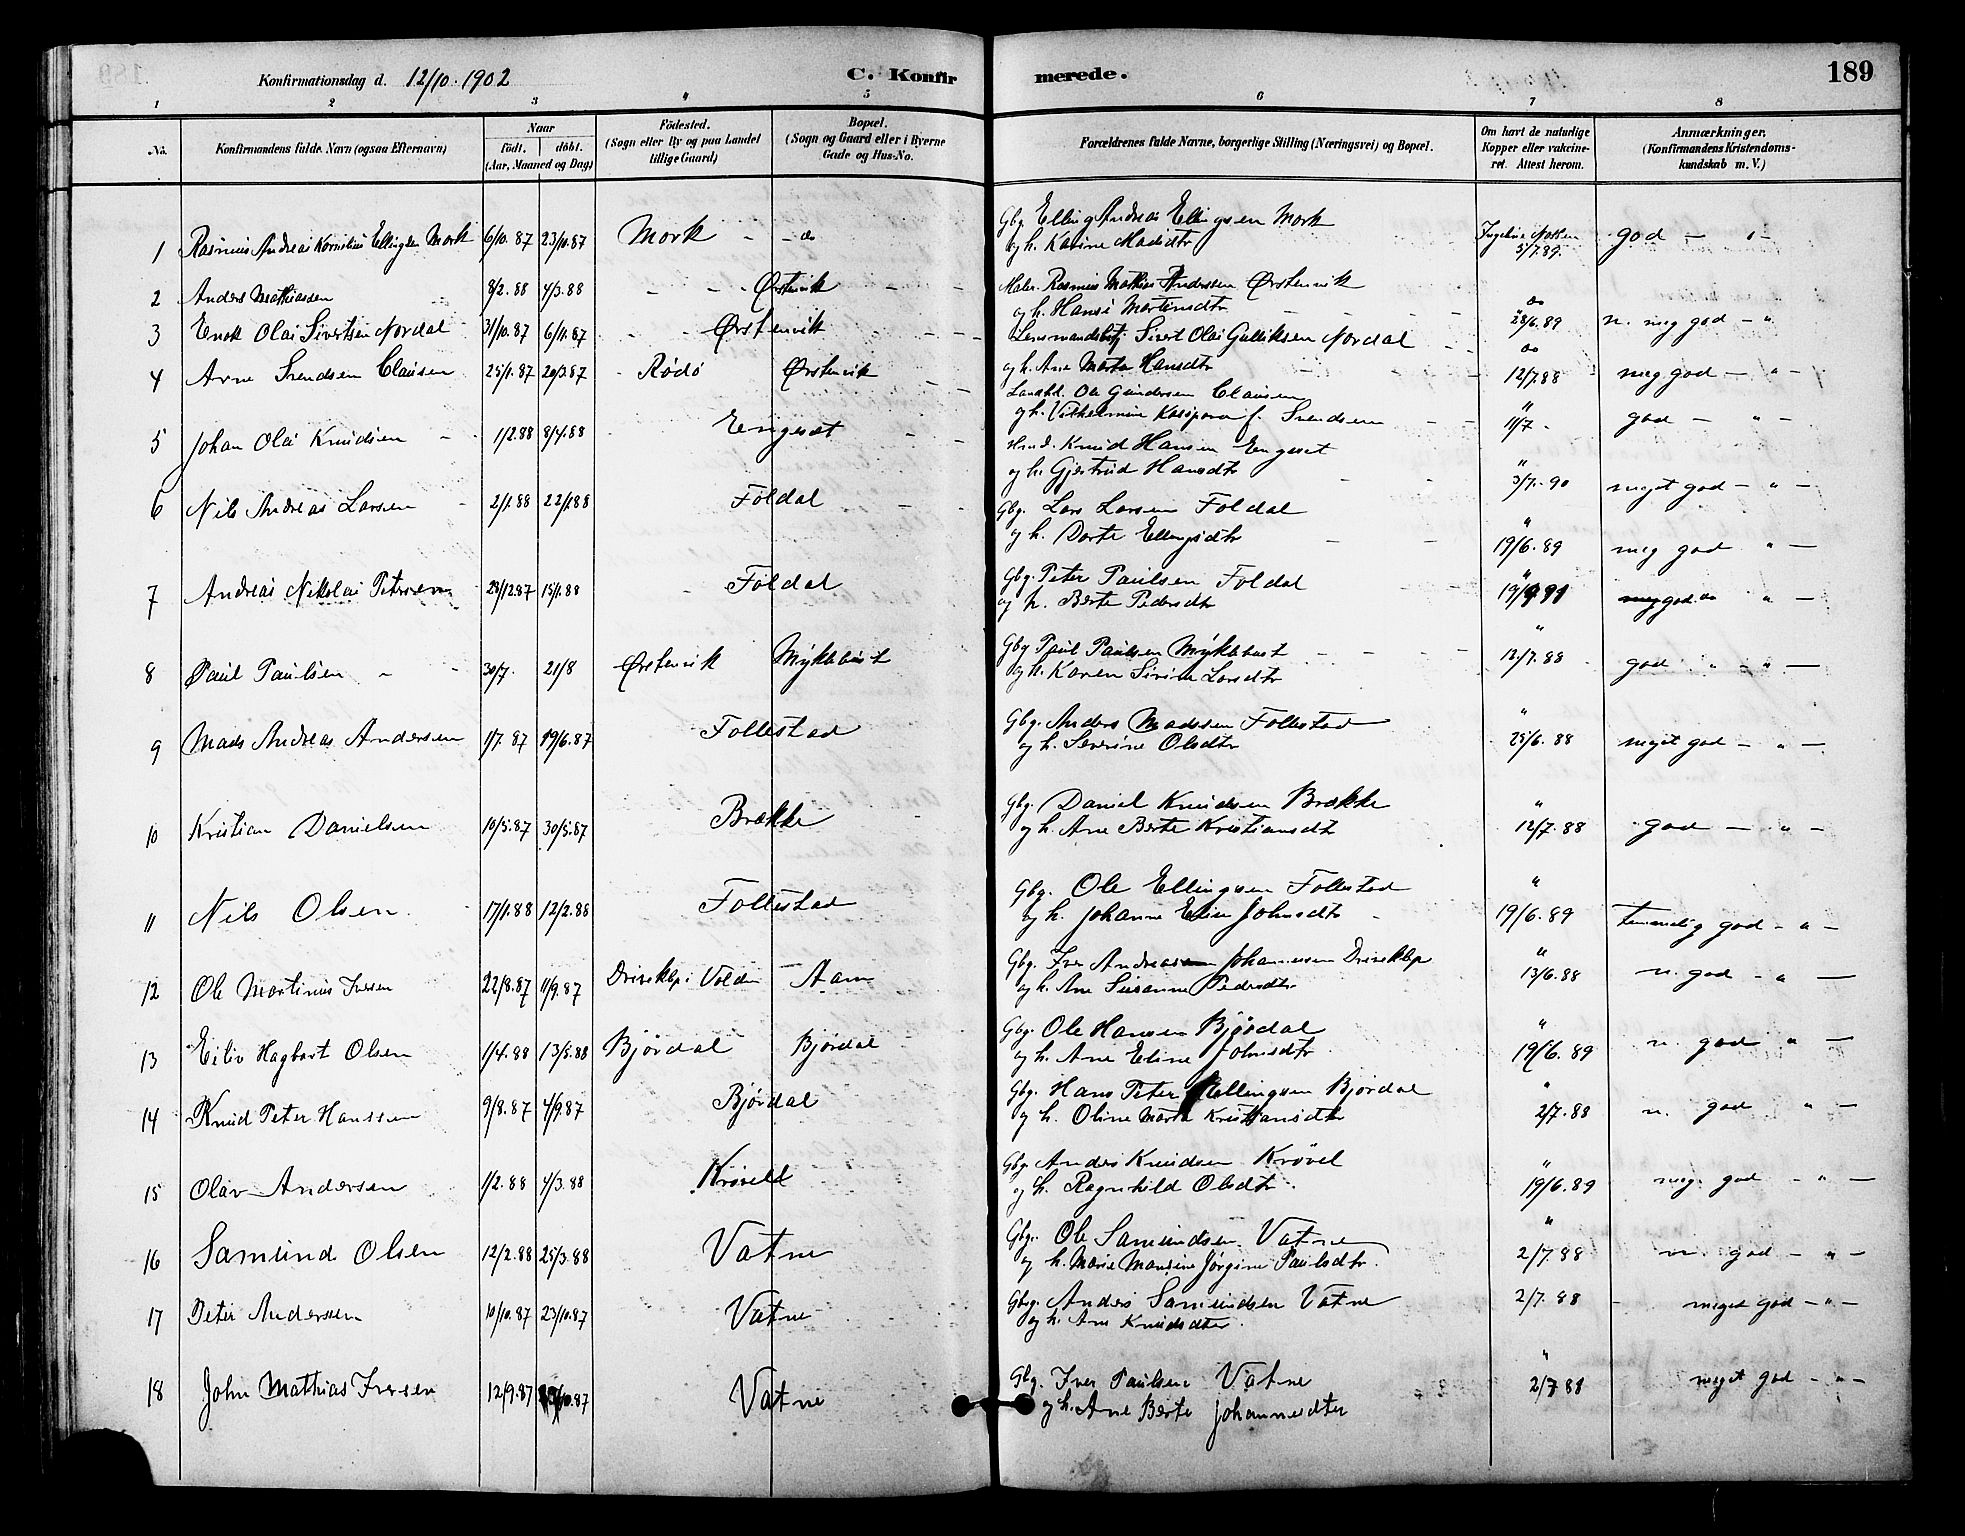 Konfirmationsdag d. 12/10. 1902
C. Konfirmerede.
189
1 2 3 4 5 6 7 8
No.
Konfirmandens fulde Navn (ogsaa Efternavn)
Naar
födt. döbt.
(Aar, Maaned og Dag)
Födested.
(Sogn eller By og paa Landet
tillige Gaard)
Bopæl.
(Sogn og Gaard eller i Byerne
Gade og Hus-No.
Forældrenes fulde Navne, borgerlige Stilling (Næringsvei) og Bopæl.
Om havt de naturlige
Kopper eller vakcine-
ret. Attest herom.
Anmærkninger.
(Konfirmandens Kristendoms-
kundskab m. V.)
1 Rasmus Andreas Kornelius Ellingsen Mork 6/10.87 23/10.87 Mork - - do
Gbg. Elling Andreas Ellingsen Mork
og h. Karine Madsdtr 5/7.89. god - " -
2 Anders Mathiassen 8/2.88 4/3.88 - - Ørstenvik
Maler. Rasmus Mathias Andersen Ørstenvik
og h. Hansi Martinusdtr do 28/6.89 n. meg god - "
3 Enok Olai Sivertsen Nordal 31/10.87 6/11.87 Ørstenvik
Lensmandsbetj Sivert Olai Gulliksen Nordal
og h. Ane Marta Hansdtr do 12/7.88 meg god - " -
4 Arne Svendsen Clausen 25/1.87 20/3.87 Rödö Ørstenvik
Landhd. Ole Gundersen Clausen
og h. Vilhelmine Kaspara f. Svendsen " 11/7 - god - " -
5 Johan Olai Knudsen 1/2.88 8/4.88 Engeset
Hmd. Knud Hansen Engeset
og h. Gjertrud Hansdtr " 3/7.-90 meget god - " -
6 Nils Andreas Larsen 2/1.88 22/1.88 Foldal
Gbg. Lars Larsen Foldal
og h. Dorte Ellingsdtr " 19/6.89 meg god " -
7 Andreas Nikolai Petersen 23/12.87 15/1.88 Foldal
Gbg. Peter Paulsen Foldal
og h. Berte Pedersdtr god " -
8 Paul Paulsen - 30/7. 21/8 Ørstenvik Myklebust
Gbg Paul Paulsen Myklebust
og h. Karen Sirine Larsdtr " 12/7.88 god " - " -
9 Mads Andreas Andersen 1/7.87 19/6.87 Follestad
Gbg. Anders Madssen Follestad
og h. Severine Olsdtr " 25/6.88 meget god - " -
10 Kristian Danielsen 10/5.87 30/5.87 Brække
Gbg. Daniel Knudsen Brække
og h. Ane Berte Kristiansdtr " 12/7.88 god - " -
11 Nils Olsen 17/1.88 12/2.88 Follestad
Gbg. Ole Ellingsen Follestad
og h. Johanne Eline Johnsdtr " 19/6.89 Temmelig god - " -
12 Ole Martinus Iversen 22/8.87 11/9.87 Driveklep i Volden Aam
Gbg. Iver Andreas Johannesen Driveklep
og h. Ane Susanne Pedersdtr " 13/6.88 n. god - " -
13 Eiliv Hagbart Olsen 1/4.88 13/5.88 Björdal Björdal
Gbg. Ole Hansen Björdal
og h. Ane Eline Johnsdtr " 19/6.89 n. god " -
14 Knud Peter Hanssen 9/8.87 4/9.87 Björdal
Gbg. Hans Peter Björdal
og h. Oline Marta Kristiansdtr " 2/7.88 n. god " -
15 Olav Andersen 1/2.88 4/3.88 Krövell
Gbg Anders Knudsen Krövel
og h. Ragnhild Olsdtr. " 19/6.89 meg. god - " -
16 Samund Olsen 12/2.88 25/3.88 Vatne
Gbg. Ole Samundsen Vatne
og h. Marie Mansine Jörgine Paulsdtr. " 2/7.88 m. god - " -
17 Peter Anderssen 10/10.87 23/10.87 Vatne
Gbg. Anders Samundsen Vatne
og h. Ane Knudsdter. 2/7.88 meget god - " -
18 John Mathias Iversen 12/9.87 /10.87 Vatne
Gbg. Iver Paulsen Vatne
og h. Ane Berte Johannesdter " 2/7 88 meget god - " -